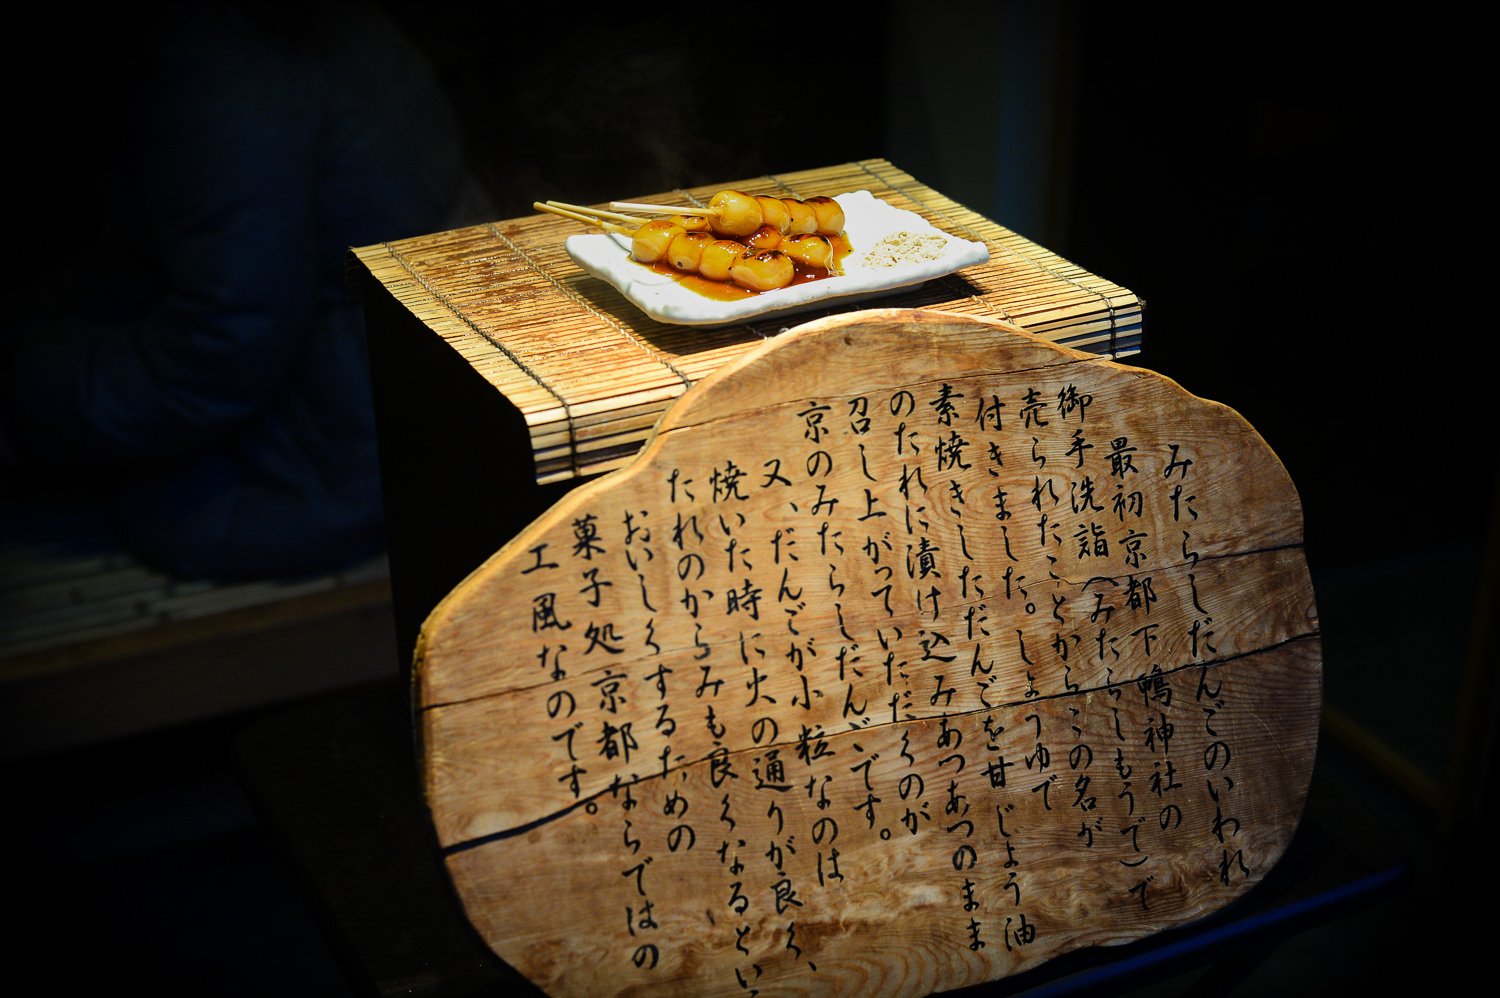 みたらしだんごのいわれ
最初京都下鴨神社の
御手洗詣(みたらしもうで)で
売られたことからこの名が
付きました。しょうゆで
素焼きしただんごを甘じょう油
のたれに漬け込みあつあつのまま
召し上がっていただくのが
京のみたらしだんごです。
又、だんごが小粒なのは
焼いた時に火の通りが良く、
たれのからみも良くなるとい
おいしくするための
菓子処京都ならではの
工風なのです。